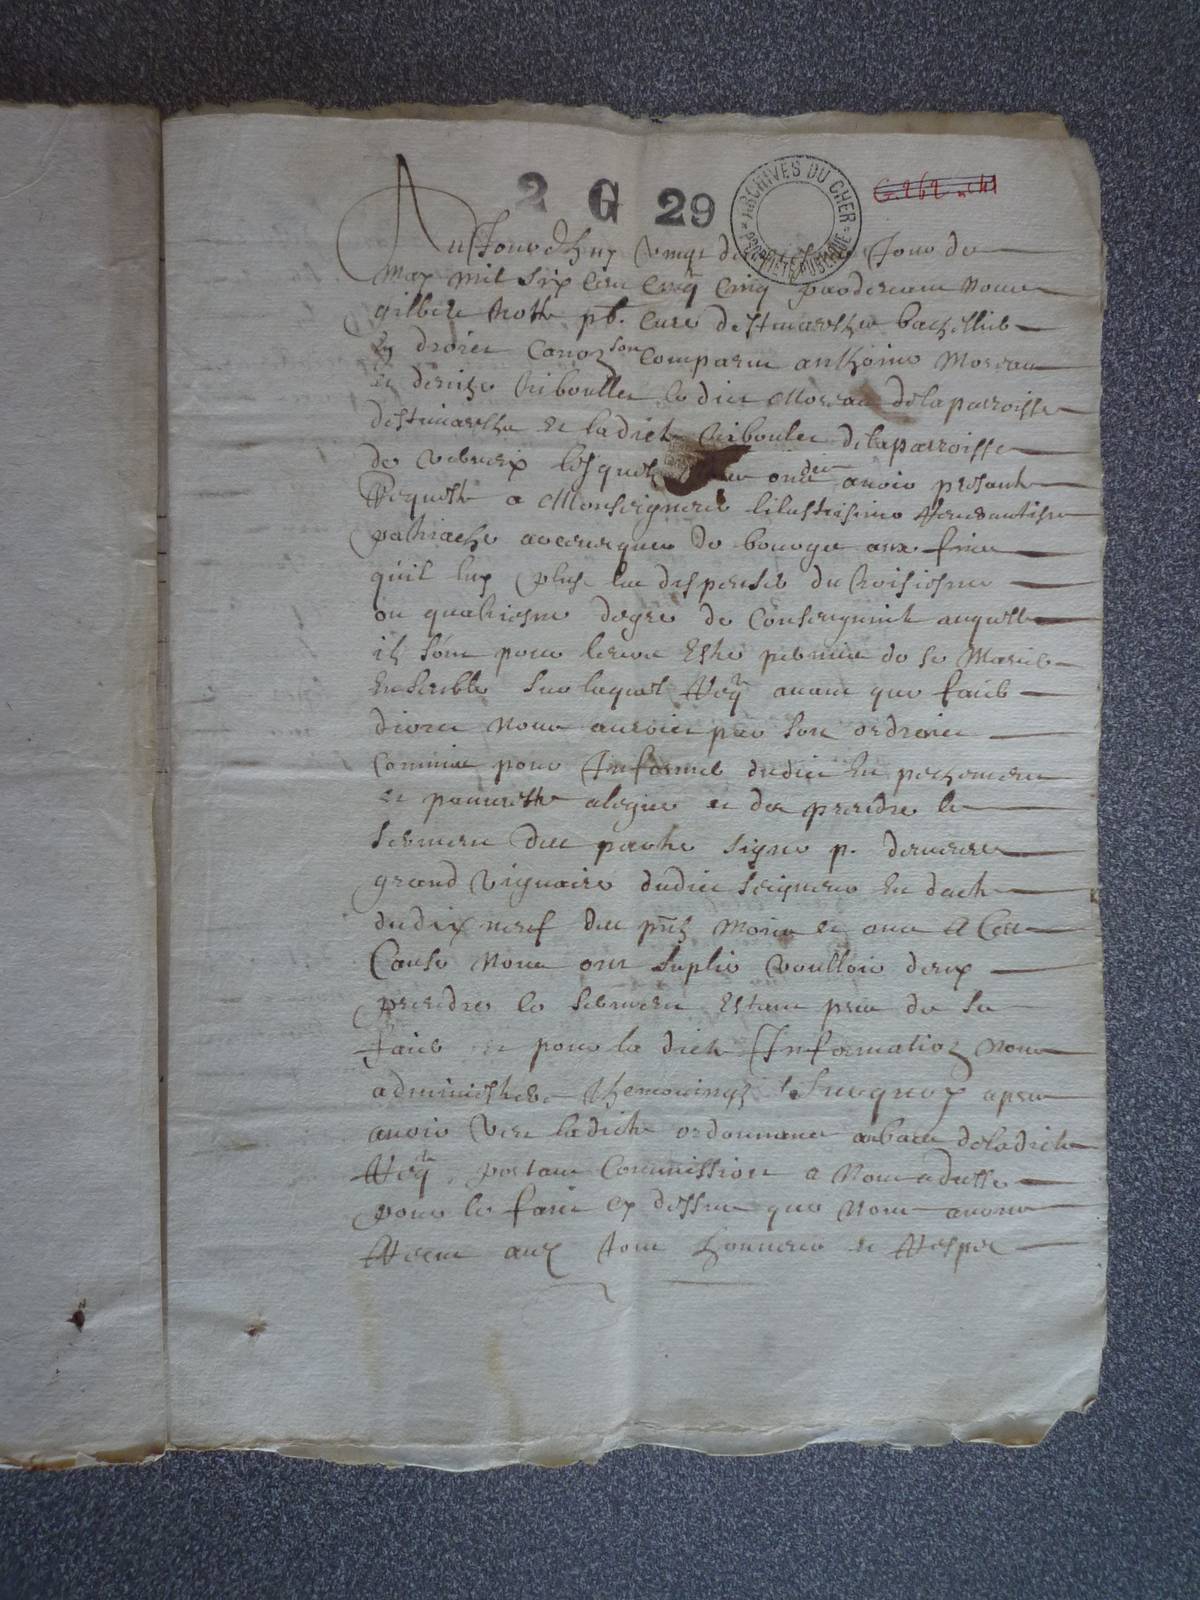 2 G 29
ARCHIVES DU CHER
PROPRIÉTÉ PUBLIQUE
G. 262
Aujourdhuy vingt jour de
may mil six cen cinq cinq par devant nous
gilbert pb. cure de st marthe bachellier
en droict canon son comparu anthoine moreau
et denize Riboullet le dict moreau de la parroisse
de st marthe et la dicte Riboulet de la parroisse
de lesquels ont dict avoir presante
Requeste a Monseigneur lilustrissime Reverantisse
patriache archevesque de bourge aux fins
quil luy plust les dispenser du troisiesme
ou quatriesme degre de Consanguinite auquelle
ilz sont pour leur Estre permis de se Marier
Ensemble sur laquel Reqte avant que faire
droict nous auroict par son ordre
Commis pour Informer dudict En peschement
et pauvrette alegue et de prendre le
serment des partie signe p.
grand viquaire dudict seigneur En dacte
du dix neuf des pntz Moris et an A Cette
Cause nous ont suplie voulloir deux
prendre le serment Estant pres de le
faire et pour la dicte Information nous
administrer themoingz Surquoy apres
avoir veu ladicte ordonnance au bas de la dicte
Reqte portant Commission a nous adresse
pour le faire cy dessus que nous avons
Receu avec tout honneur et Respec